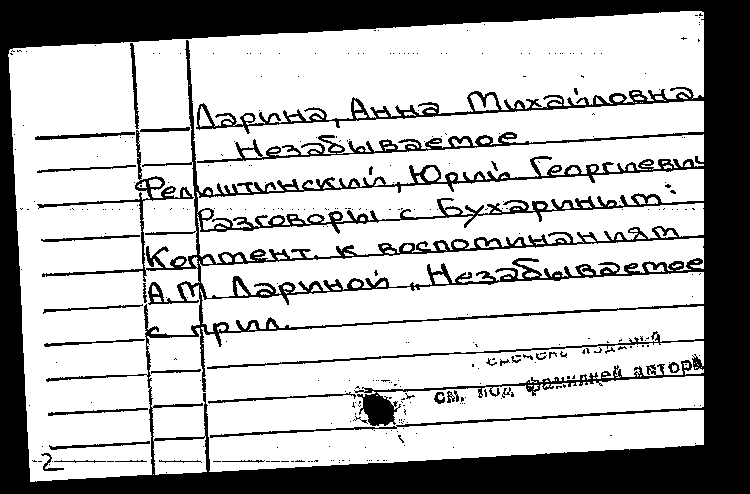 Ларина, Анна Михайловна.
Незабываемое.
Фельштинский, Юрий Георгиевич
Разговоры с Бухариным:
Коммент. к воспоминаниям
А.М. Лариной „Незабываемое
с прил.
издания
см. под фамилией автора
2